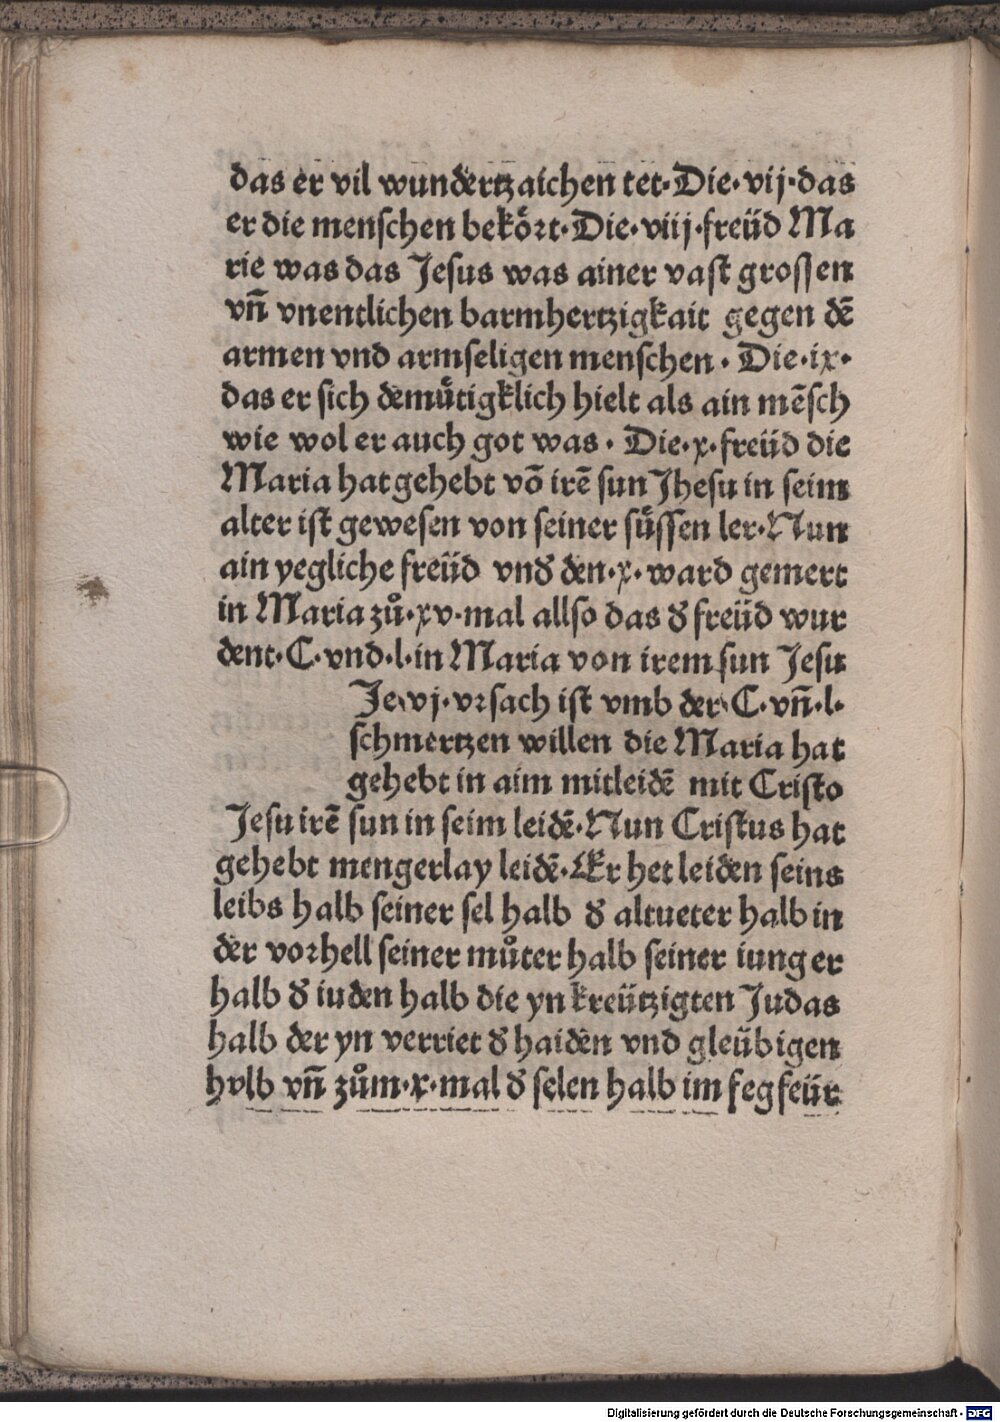 das er vil wundertzaichen tet·Die·vij·das
er die menſchen bekoͤꝛt·Die·viij·freüd Ma
rie was das Jeſus was ainer vaſt groſſen
vn̄ vnentlichen barmhertzigkait gegen dē
armen vnd armſeligen menſchen·Die·ix·
das er ſich demuͤtigklich hielt als ain mēſch
wie wol er auch got was·Die·x·freüd die
Maria hat gehebt vō irē ſun Jheſu in ſeim
alter iſt geweſen von ſeiner ſuͤſſen ler·Nun
ain yegliche freüd vnd̕ den·x·ward gemert
in Maria zuͦ·xv·mal allſo das d̕ freüd wur
dent·C·vnd·l·in Maria von irem ſun Jeſu
Je·vj·vꝛſach iſt vmb der·C·vn̄·l·
ſchmertzen willen die Maria hat
gehebt in aim mitleidē mit Criſto
Jeſu irē ſun in ſeim leidē·Nun Criſtus hat
gehebt mengerlay leidē·Er het leiden ſeins
leibs halb ſeiner ſel halb d̕ altueter halb in
der voꝛhell ſeiner muͦter halb ſeiner iunger
halb d̕ iuden halb die yn kreützigten Judas
halb der yn verriet d̕ haiden vnd gleübigen
hvlb vn̄ zuͦm·x·mal d̕ ſelen halb im fegfeür
Digitalisierung gefördert durch die Deutsche Forschungsgemeinschaft - DFG